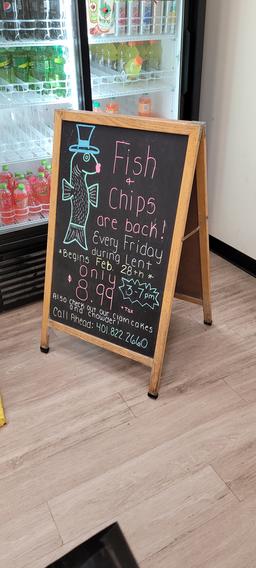 Fish
+
Chips
are back!
Every Friday
during Lent
*Begins Feb. 28th*
only
$8.99 +tax
3-7pm
Also check out our clamcakes
and chowder!
Call Ahead: 401.822.2660